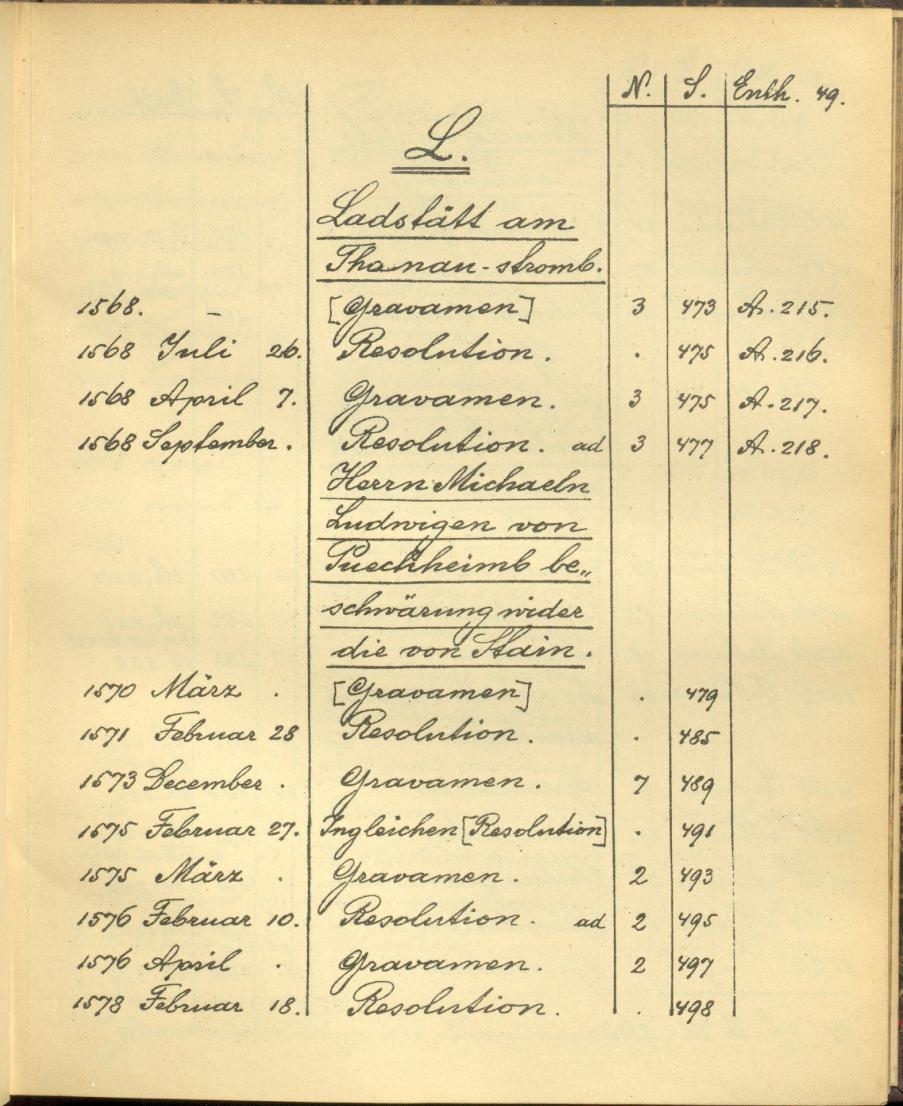 N. S. Enth. 49.
L.
Ladstätt am
Thanau-stromb.
1568. – [Gravamen] 3 473 A. 215.
1568 Juli 26. Resolution. . 475 A. 216.
1568 April 7. Gravamen. 3 475 A. 217.
1568 September. Resolution. ad 3 477 A. 218.
Herrn Michaeln
Ludwigen von
Puechheimb be„
schwärung wider
die von Stain.
1570 März . [Gravamen] . 479
1571 Februar 28 Resolution. . 485
1573 December . Gravamen. 7 489
1575 Februar 27. Ingleichen [Resolution] . 491
1575 März . Gravamen. 2 493
1576 Februar 10. Resolution. ad 2 495
1576 April . Gravamen. 2 497
1578 Februar 18. Resolution. . 498